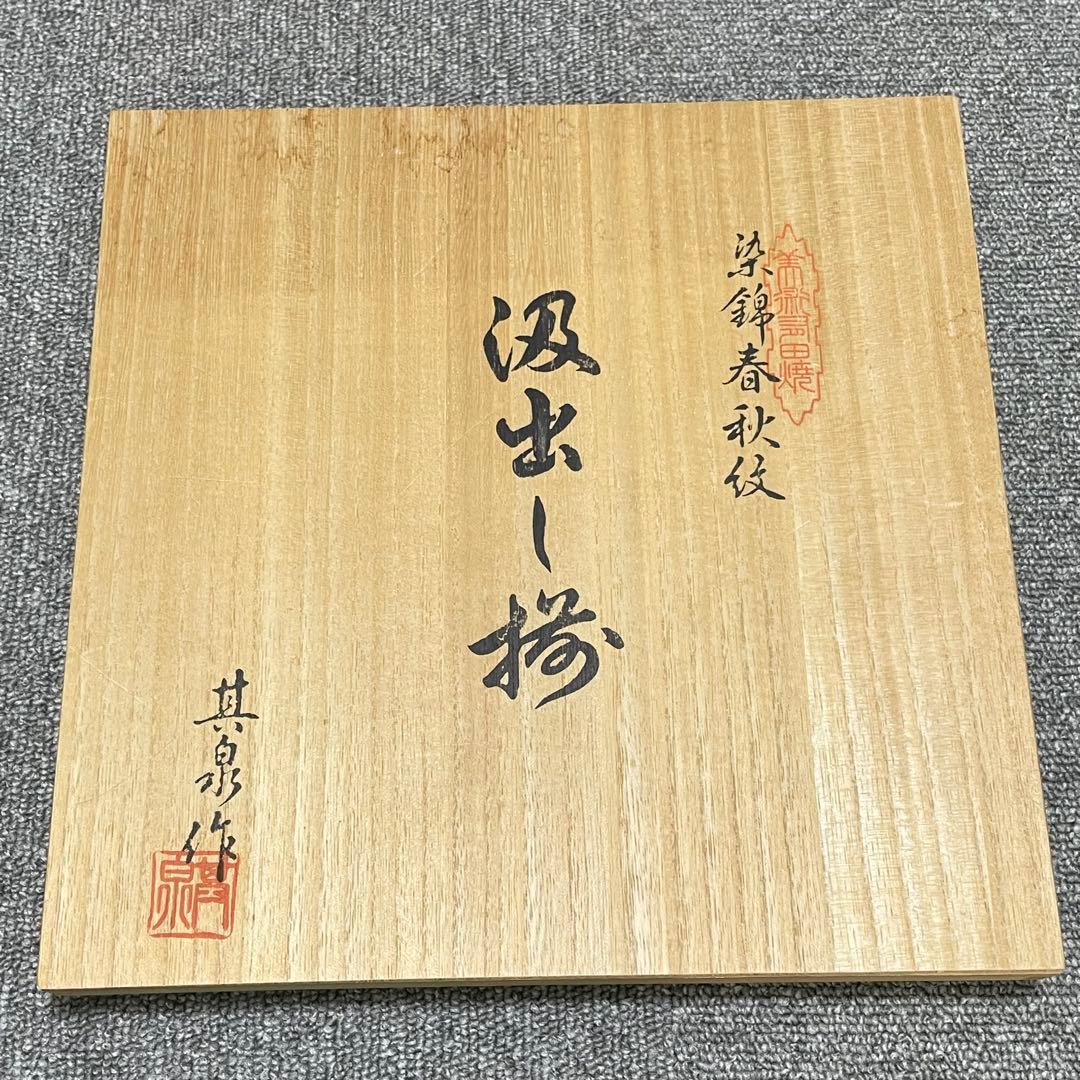 美術有田焼
染錦春秋紋
汲出し揃
其泉作
其泉